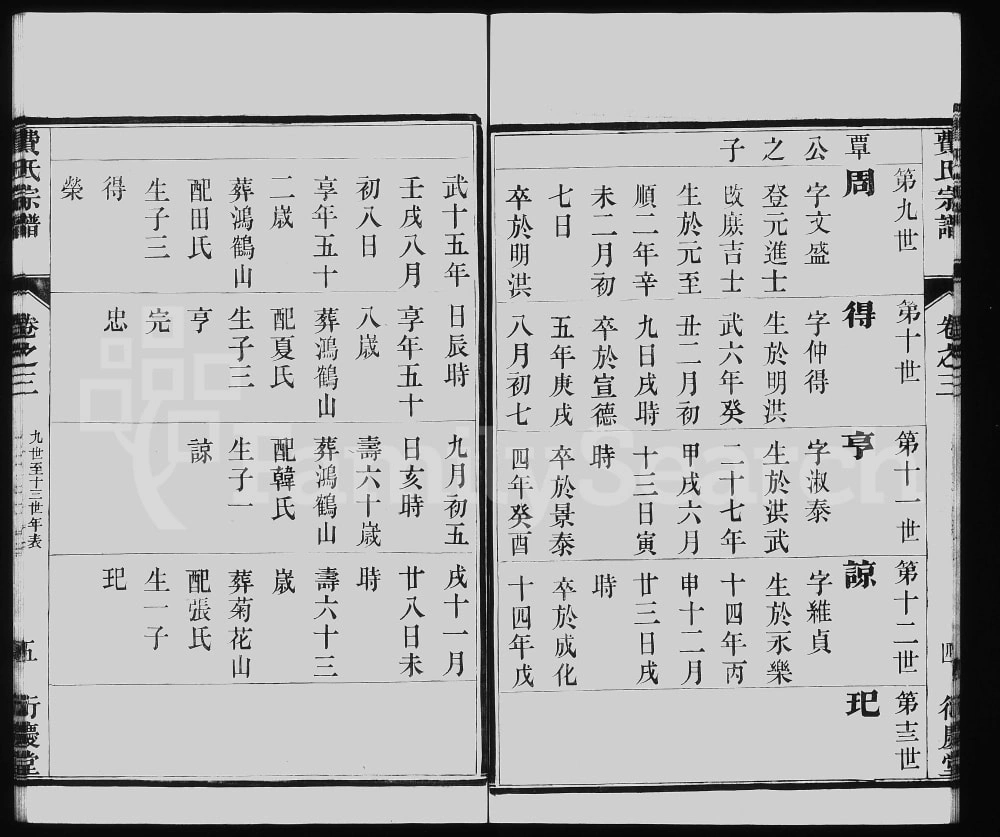 費氏宗譜
卷之三
四
衍慶堂
第九世
覃公之子
周
字文盛
登元進士
改庶吉士
生於元至
順二年辛
未二月初
七日
卒於明洪
第十世
得
字仲得
生於明洪
武六年癸
丑二月初
九日戌時
卒於宣德
五年庚戌
八月初七
第十一世
亨
字淑泰
生於洪武
二十七年
甲戌六月
十三日寅
時
卒於景泰
四年癸酉
第十二世
諒
字維貞
生於永樂
十四年丙
申十二月
廿三日戌
時
卒於成化
十四年戊
第十三世
玘
武十五年
壬戌八月
初八日
享年五十
二歲
葬鴻鶴山
配田氏
生子三
得
榮
日辰時
享年五十
八歲
葬鴻鶴山
配夏氏
生子三
亨
完
忠
九月初五
日亥時
壽六十歲
葬鴻鶴山
配韓氏
生子一
諒
戌十一月
廿八日未
時
壽六十三
歲
葬菊花山
配張氏
生一子
玘
費氏宗譜
卷之三
九世至十三世年表
五
衍慶堂
FamilySearch